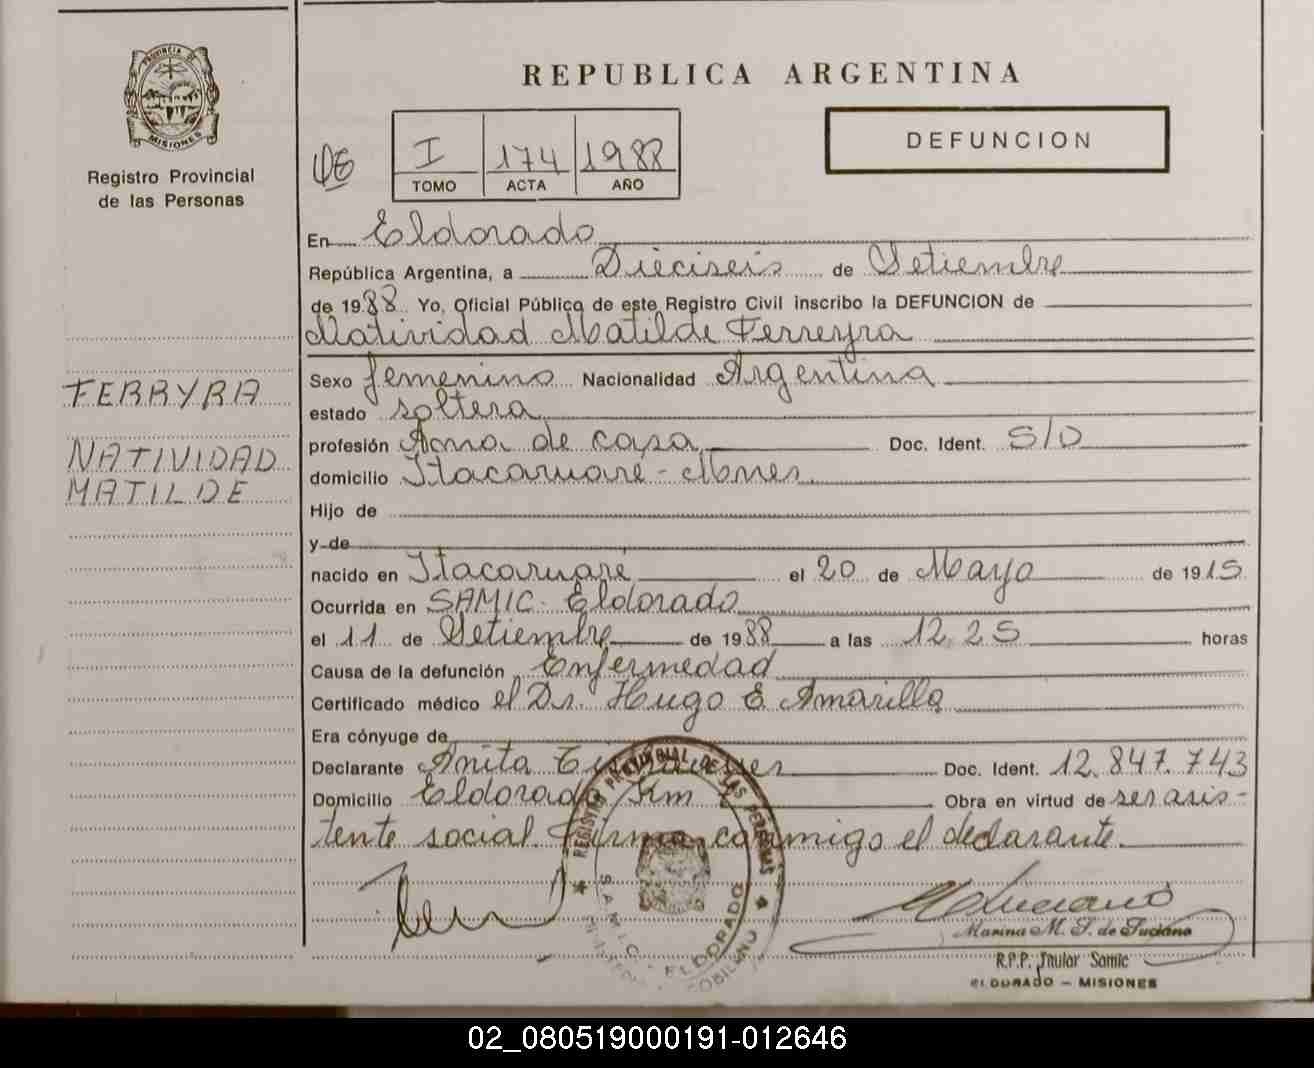 PROVINCIA DE
MISIONES
Registro Provincial
de las Personas
FERRYRA
NATIVIDAD
MATILDE
REPUBLICA ARGENTINA
DEFUNCION
I 174 1988
TOMO ACTA AÑO
En Eldorado
República Argentina, a Dieciseis de Setiembre
de 1988 Yo, Oficial Público de este Registro Civil inscribo la DEFUNCION de
Natividad Matilde Ferreyra
Sexo femenino Nacionalidad Argentina
estado soltera
profesión Ama de casa Doc. Ident. S/D
domicilio Itacaruare - Mnes.
Hijo de
y de
nacido en Itacaruaré el 20 de Mayo de 1915
Ocurrida en SAMIC - Eldorado
el 11 de Setiembre de 1988 a las 12,25 horas
Causa de la defunción Enfermedad
Certificado médico el Dr. Hugo E. Amarilla
Era cónyuge de
Declarante Anita Doc. Ident. 12.847.743
Domicilio Eldorado Km 2 Obra en virtud de ser asis-
tente social. Firma conmigo el declarante.
REGISTRO PROVINCIAL DE LAS PERSONAS
S.A.M.I.C. - ELDORADO
Marina M. S. de Luciano
R.P.P. Titular Samic
ELDORADO - MISIONES
02_080519000191-012646